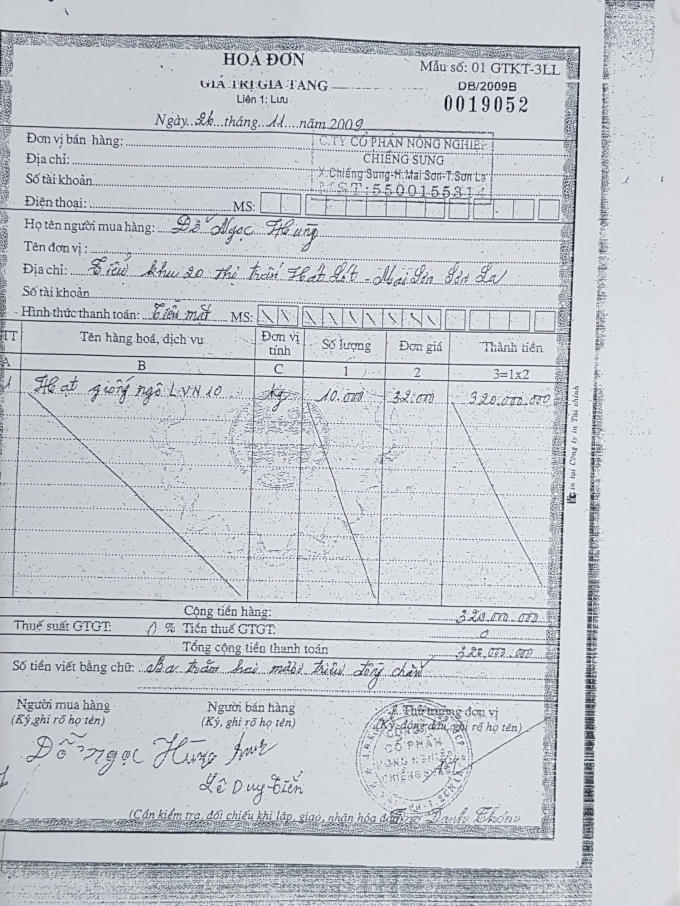 HOÁ ĐƠN
Mẫu số: 01 GTKT-3LL
GIÁ TRỊ GIA TĂNG
DB/2009B
Liên 1: Lưu
0019052
Ngày 26 tháng 11 năm 2009
Đơn vị bán hàng: C.TY CỔ PHẦN NÔNG NGHIỆP
Địa chỉ: CHIỀNG SUNG
Số tài khoản X.Chiềng Sung-H.Mai Sơn-T.Sơn La
MST:5500155314
Điện thoại: MS:
Họ tên người mua hàng: Đỗ Ngọc Hùng
Tên đơn vị:
Địa chỉ: Tiểu khu 20 thị trấn Hát Lót - Mai Sơn Sơn La
Số tài khoản
Hình thức thanh toán: Tiền mặt MS:
TT Tên hàng hoá, dịch vụ Đơn vị tính Số lượng Đơn giá Thành tiền
A B C 1 2 3=1x2
1 Hạt giống ngô LVN 10 kg 10.000 32.000 320.000.000
in tại Công ty in Tài chính
Cộng tiền hàng: 320.000.000
Thuế suất GTGT: 0 % Tiền thuế GTGT: 0
Tổng cộng tiền thanh toán 320.000.000
Số tiền viết bằng chữ: Ba trăm hai mươi triệu đồng chẵn
Người mua hàng Người bán hàng Thủ trưởng đơn vị
(Ký, ghi rõ họ tên) (Ký, ghi rõ họ tên) (Ký, đóng dấu, ghi rõ họ tên)
CÔNG TY
CỔ PHẦN
NÔNG NGHIỆP
CHIỀNG SUNG
Đỗ Ngọc Hùng
Lê Duy Tiến
(Cần kiểm tra, đối chiếu khi lập, giao, nhận hóa đơn)
Danh